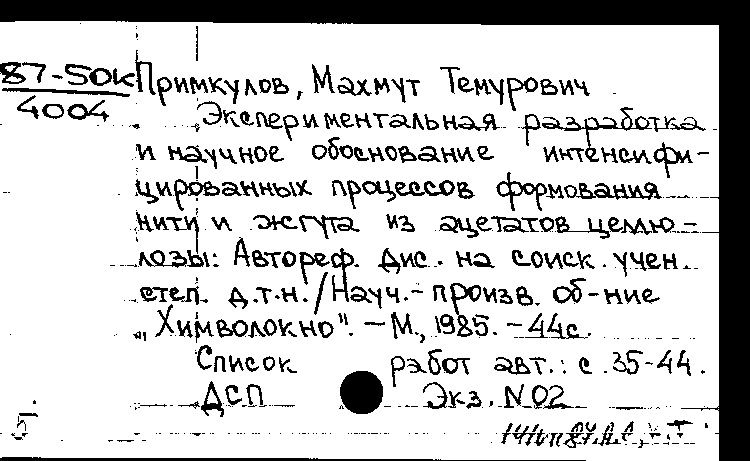 87-50к
4004
Примкулов, Махмут Темурович
Экспериментальная разработка
и научное обоснование интенсифи-
цированных процессов формования
нити и жгута из ацетатов целлю-
лозы: Автореф. дис. на соиск. учен.
степ. д.т.н./Науч.-произв. об-ние
„Химволокно". - М., 1985. - 44с.
Список работ авт.: с. 35-44.
ДСП Экз. N02
5